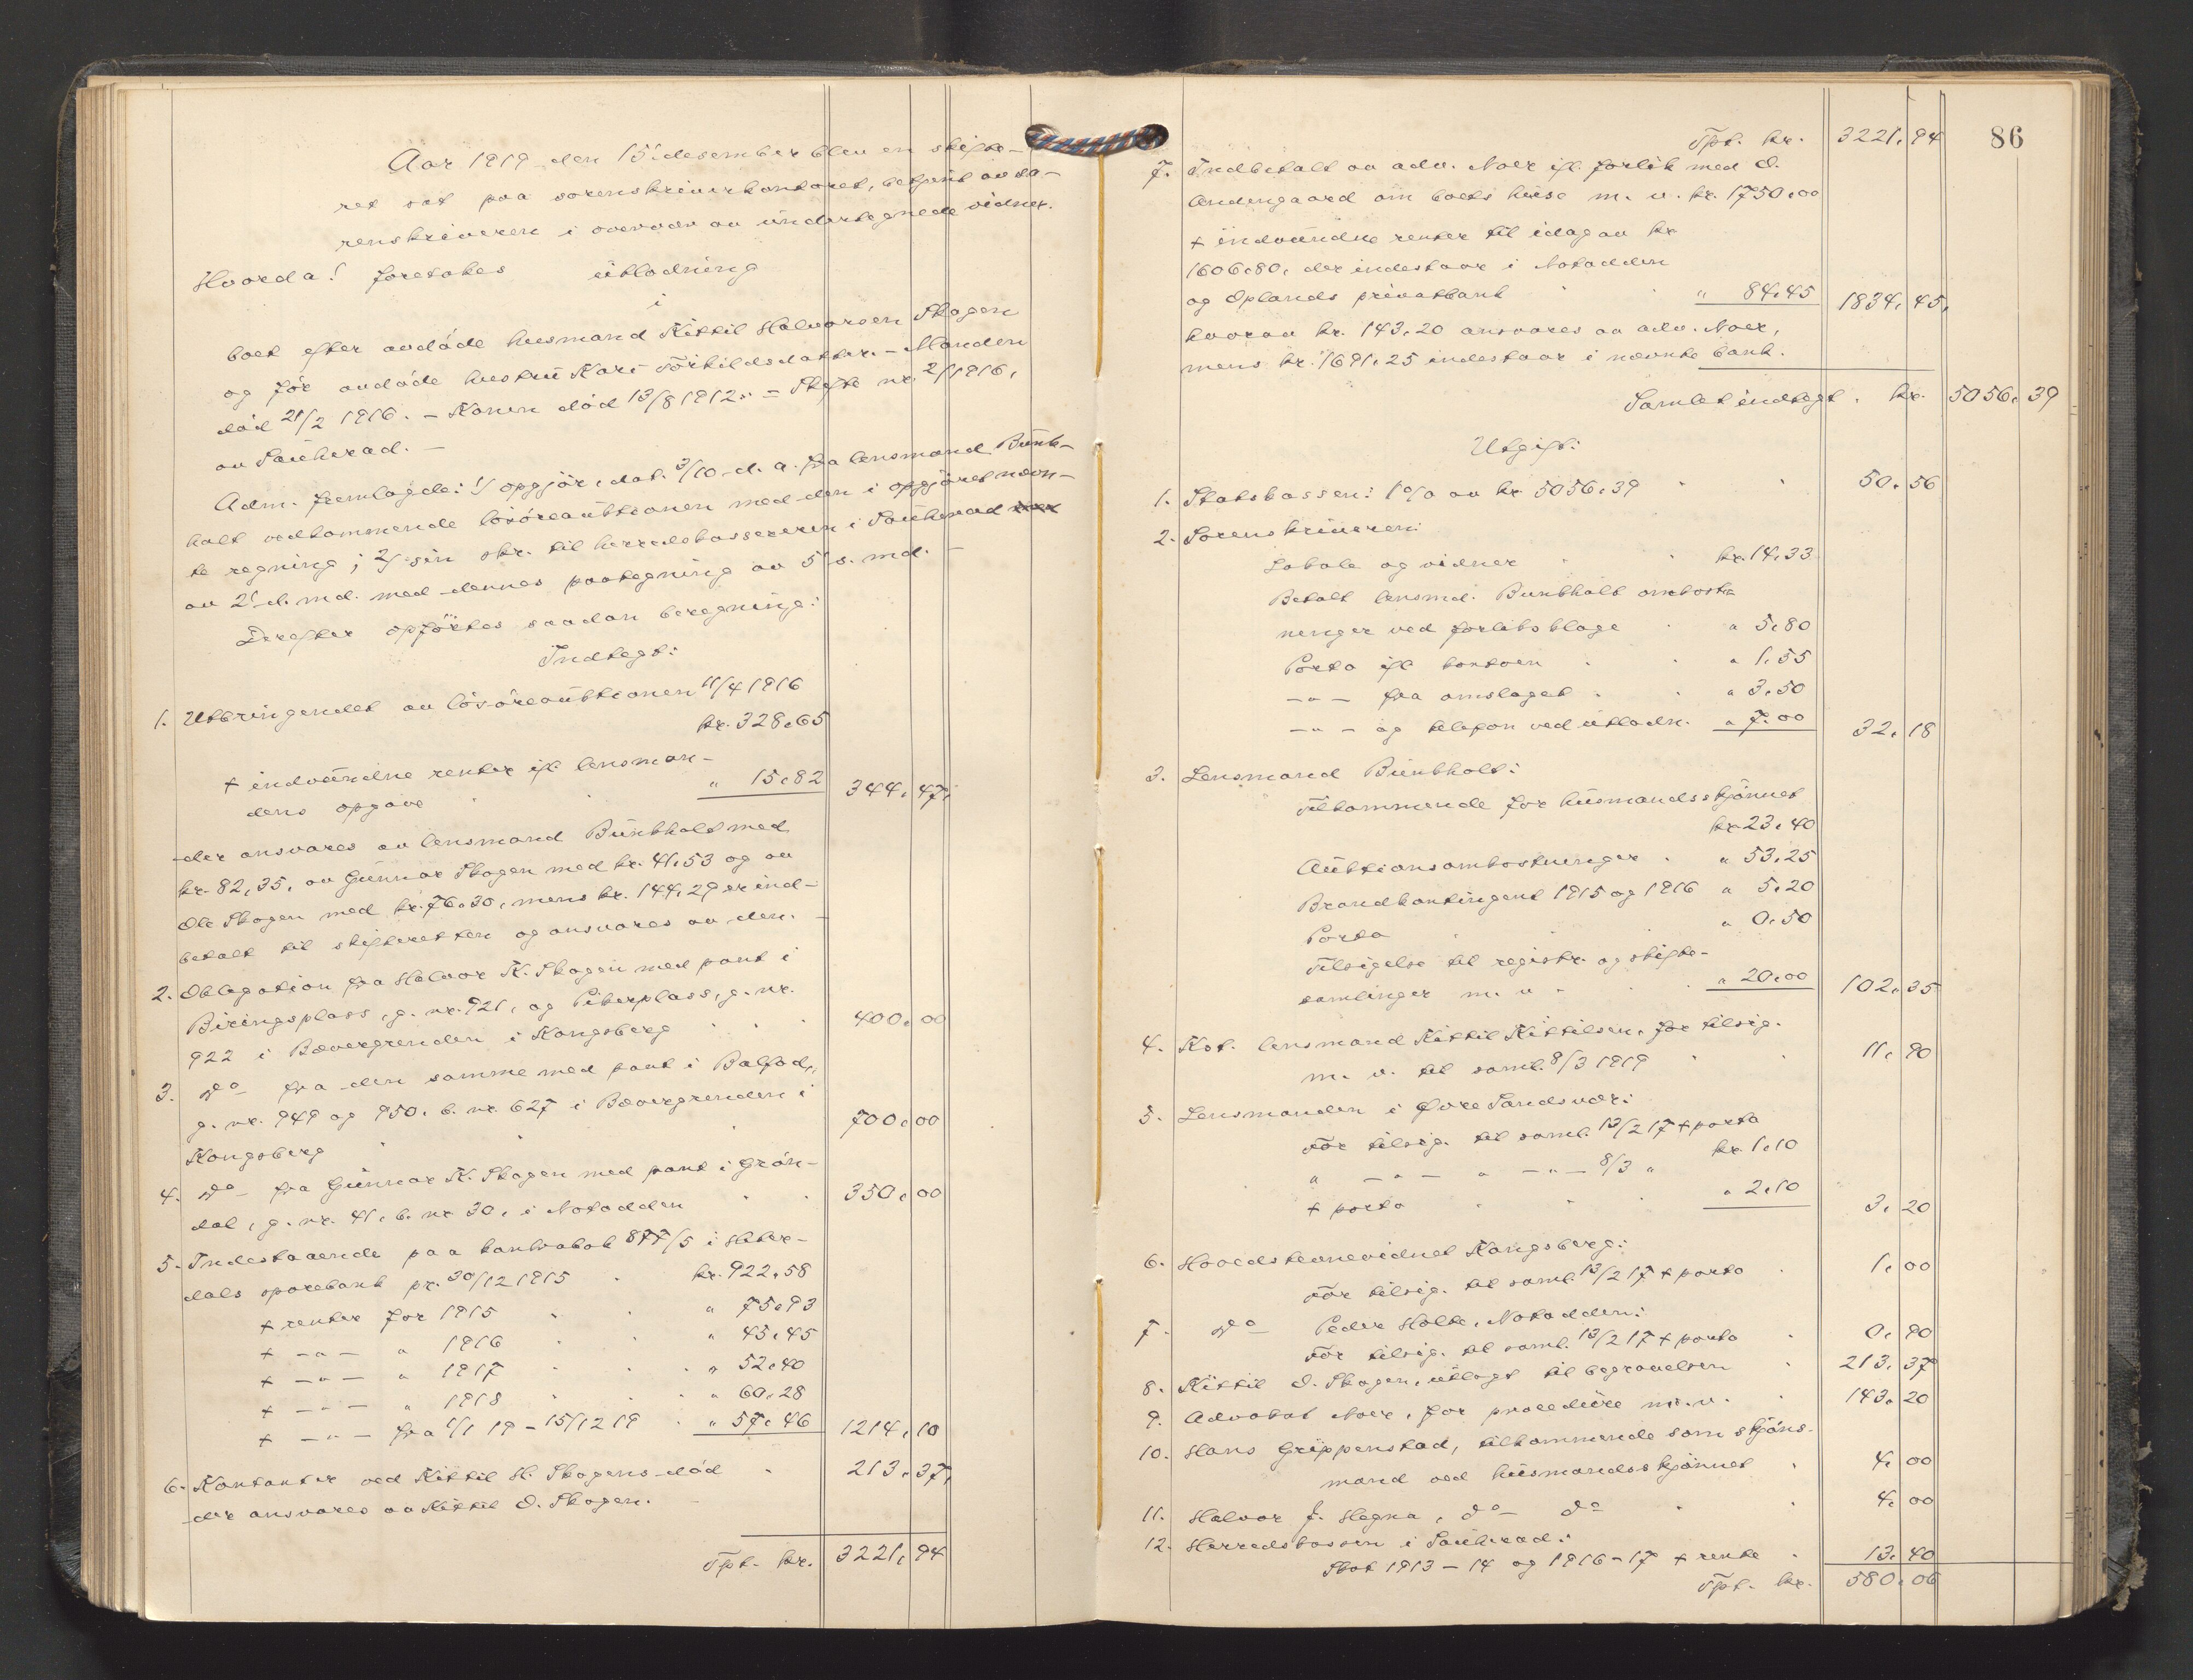 Aar 1919 den 15' desember blev en skifte-
ret sat paa sorenskriverkontoret, betjent av so-
renskriveren i overvær av undertegnede vidner.
Hvorda! foretokes utlodning
i
boet efter avdøde husmand Kittil Halvorsen Skogen
og før avdøde hustru Kari Torkildsdatter. - Manden
død 21/2 1916. - Konen død 13/8 1912. - Skifte nr. 2/1916,
av Sauherad. -
Adm. fremlagde: 1/ opgjør, dat. 3/10 d. a. fra lensmand Bunk-
holt vedkommende løsøreauktionen med den i opgjøret nævn-
te regning; 2/ sin skr. til herredskassereren i Sauherad
av 2' d. md. med dennes paategning av 5' s. md. -
Derefter opførtes saadan beregning:
Indtegt:
1. Utbringendet av løsøreauktionen 11/4 1916
kr. 328.65
+ indvundne renter ifl. lensman-
dens opgave " 15.82 344. 47.
der ansvares av lensmand Bunkholt med
kr. 82,35, av Gunnar Skogen med kr. 41.53 og av
Ole Skogen med kr. 76.30, mens kr. 144.29 er ind-
betalt til skifteretten og ansvares av den. -
2. Obligation fra Halvor K. Skogen med pant i
Biringsplass, g. nr. 921, og Piberplass, g. nr.
922 i Bævergrenden i Kongsberg 400.00
3. do fra den samme med pant i Balfod,
g. nr. 949 og 950. b. nr. 627 i Bævergrenden i
Kongsberg 700.00
4. do fra Gunnar K. Skogen med pant i Grøn-
dal, g. nr. 41, b. nr. 30, i Notodden 350.00
5. Indestaaende paa bankbok 877/5 i Hiter-
dals sparebank pr. 30/12 1915 kr. 922.58
+ renter for 1915 " 75.93
+ -"- " 1916 " 45.45
+ -"- " 1917 " 52.40
+ -"- " 1918 " 60.28
+ -"- fra 1/1 19 - 15/12 19 " 57.46 1214. 10
6. Kontanter ved Kittil H. Skogens død 213. 37,
der ansvares av Kittil O. Skogen. -
Tpt. kr. 3221. 94
86
Tpt. kr. 3221. 94
7. Indbetalt av adv. Moer ifl. forlik med O.
Andengaard om boets huse m. v. kr. 1750.00
+ indvundne renter til idag av kr.
1606.80, der indestaar i Notodden
og Oplands privatbank " 84.45 1834. 45.
hvorav kr. 143.20 ansvares av adv. Moer,
mens kr. 1691.25 indestaar i nævnte bank.
Samlet indtegt. kr. 5056. 39
Utgift:
1. Statskassen: 1% av kr. 5056.39 50. 56
2. Sorenskriveren:
Lokale og vidner kr. 14.33
Betalt lensmd. Bunkholt omkost-
ninger ved forliksklage " 5.80
Porto ifl. kontoen " 1.55
-"- fra omslaget " 3.50
-"- og telefon ved utlodn. " 7.00 32. 18
3. Lensmand Bunkholt:
Tilkommende for husmandsskjønnet
kr. 23.40
Auktionsomkostninger " 53.25
Brandkontingent 1915 og 1916 " 5.20
Porto " 0.50
Tilsigelse til registr. og skifte-
samlinger m. v. " 20.00 102. 35
4. Kst. lensmand Kittil Kittilsen, for tilsig.
m. v. til saml. 8/3 1919 11. 90
5. Lensmanden i Øvre Sandsvær:
For tilsig. til saml. 13/2 17 + porto
kr. 1.10
" -"- " -"- 8/3 "
+ porto " 2.10 3. 20
6. Hovedstevnevidnet Kongsberg:
For tilsig. til saml. 13/2 17 + porto 1. 00
7. do Peder Holte, Notodden:
For tilsig. til saml. 13/2 17 + porto 0. 90
8. Kittil O. Skogen, utlagt til begravelsen 213. 37
9. Advokat Moer, for procedure m. v. 143. 20
10. Hans Grippenstad, tilkommende som skjøns-
mand ved husmandsskjønnet 4. 00
11. Halvor J. Hegna, do do 4. 00
12. Herredskassen i Sauherad:
Skat 1913 - 14 og 1916 - 17 + rente 13. 40
Tpt. kr. 580. 06